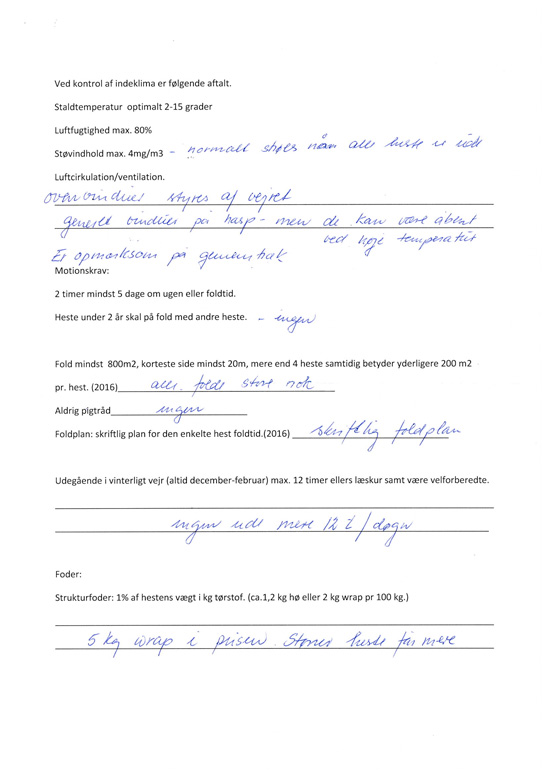 Ved kontrol af indeklima er følgende aftalt.
Staldtemperatur optimalt 2-15 grader
Luftfugtighed max. 80%
Støvindhold max. 4mg/m3 – normalt når alle heste er ude
Luftcirkulation/ventilation.
ovenvinduer styres af vejret
generelt vinduer på hasp - men de kan være åbent
ved høje temperatur
Er opmærksom på gennemtræk
Motionskrav:
2 timer mindst 5 dage om ugen eller foldtid.
Heste under 2 år skal på fold med andre heste. – ingen
Fold mindst 800m2, korteste side mindst 20m, mere end 4 heste samtidig betyder yderligere 200 m2
pr. hest. (2016) alle folde store nok
Aldrig pigtråd ingen
Foldplan: skriftlig plan for den enkelte hest foldtid.(2016) skriftlig foldplan
Udegående i vinterligt vejr (altid december-februar) max. 12 timer ellers læskur samt være velforberedte.
ingen ude mere 12 t / døgn
Foder:
Strukturfoder: 1% af hestens vægt i kg tørstof. (ca.1,2 kg hø eller 2 kg wrap pr 100 kg.)
5 kg wrap i prisen. Større heste får mere